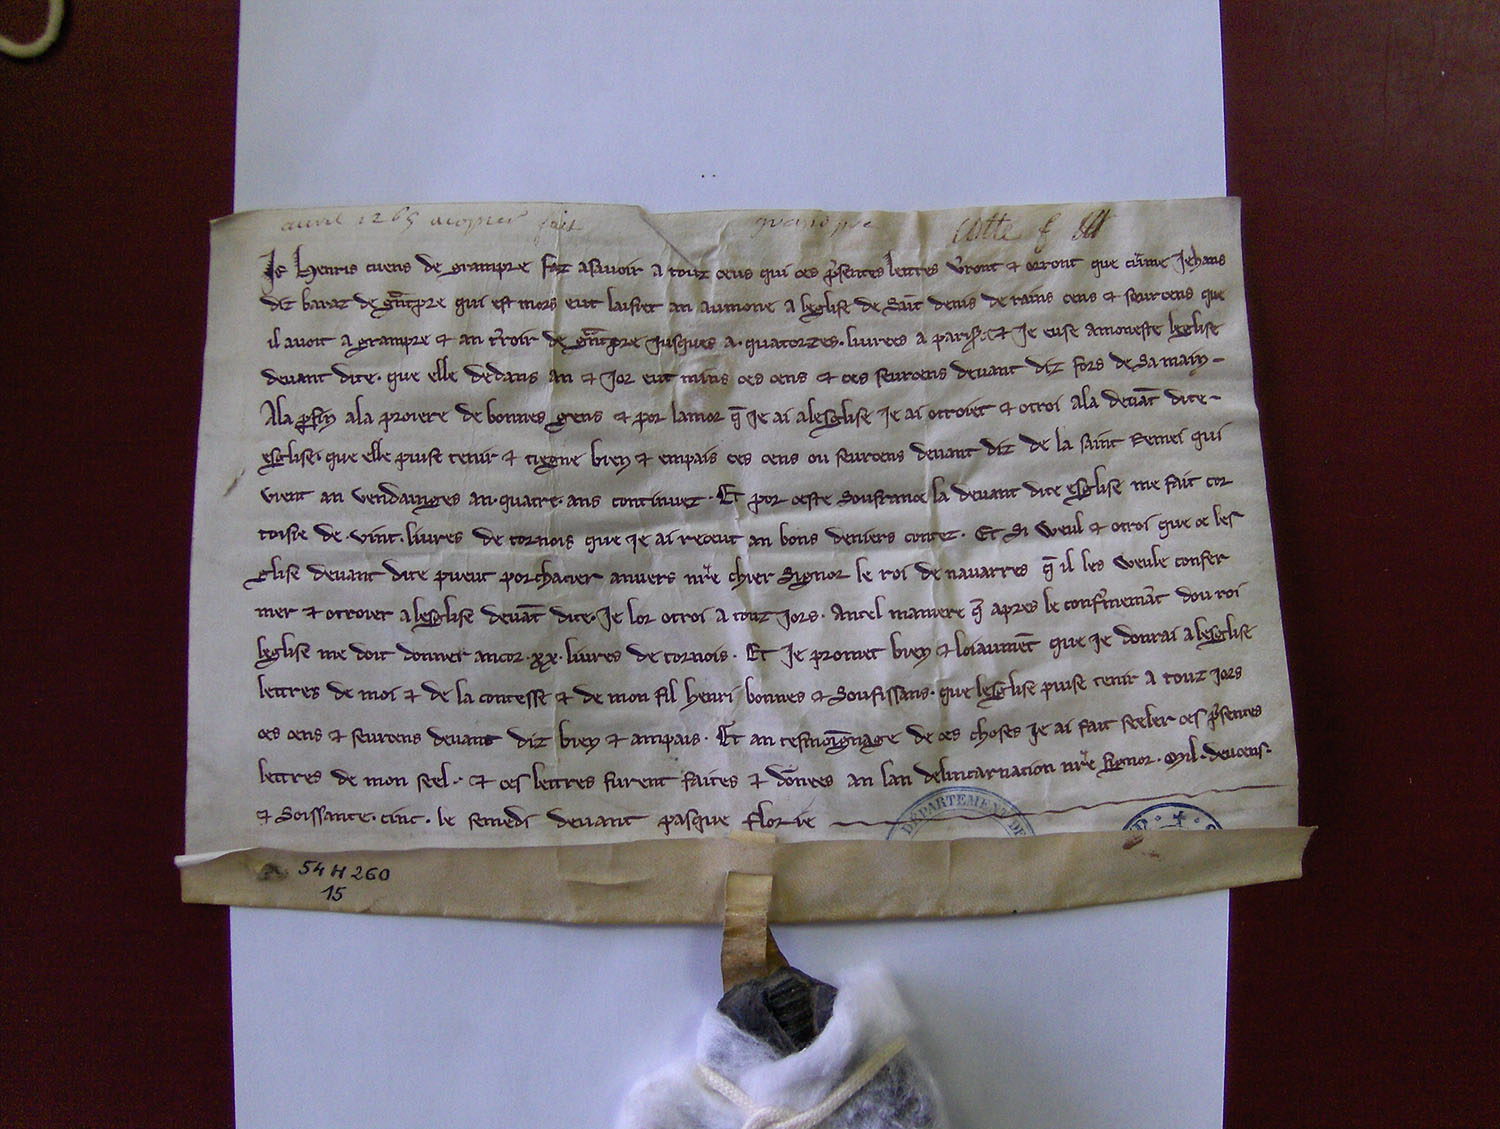 avril 1265 acopier fait grandpre cotte f
Je henris cuens de grampre faz asavoir a touz ceus qui ces p̃sentes lettres v̾ront ⁊ orront que cũme Jehans
diz baraz de gñtpre qui est mors eut laissiet an aumone a leglise de saint denis de rains cens ⁊ seurcens que
il avoit a grampre ⁊ an t̾roir de gñtpre jusques a · quatorzes · livrees a paris̾ · ⁊ Je euse amoneste leglise
devant dite · que elle dedans an ⁊ jor eut mins ces cens ⁊ ces seurcens devant diz fors de sa main –
Ala p̱fin ala proiere de bonnes gens ⁊ por lamor q̃ Je ai a lesglise Je ai otroiet ⁊ otroi ala devãt dite –
esglise · que elle puise tenir ⁊ tiegne bien ⁊ empais ces cens ou seurcens devant diz de la saint Remei qui
vient an vendainges an · quatre · ans continuez · Et por ceste soufrance la devant dite esglise me fait cor
toisie de · vint · livres de tornois que Je ai receut an bons deniers contez · Et si weul ⁊ otroi que ce les
glise devant dite puent porchacier anvers nr̃e chier signor le roi de navarres q̃ il les weule confer
mer ⁊ otroier a lesglise devãt dite · Je lor otroi a touz jors · Antel maniere q̃ apres le conf̾memãt dou roi
leglise me doit donner ancor · xx · livres de tornois · Et Je promet bien ⁊ loiaumẽt que Je donrai a lesglise
lettres de moi ⁊ de la contesse ⁊ de mon fil henri bonnes ⁊ soufissans · que lesglise puise tenir a touz jors
ces cens ⁊ seurcens devant diz bien ⁊ ampais · Et an tesmoignage de ces choses Je ai fait seeler ces p̃sentes
lettres de mon seel · ⁊ ces lettres furent faites ⁊ dõnees an lan delincarnation nr̃e signor · Mil · deucens ·
⁊ soissante · cinc · le semedi devant pasque florie
DÉPARTEMENT DE
54 H 260
15